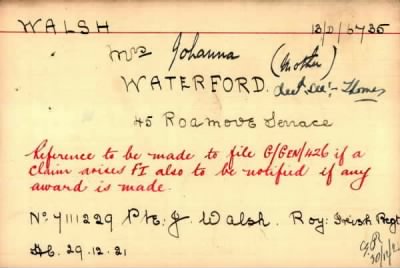 WALSH 13/D/5735
Mrs Johanna (Mother)
WATERFORD. Thomas
45 Roamove Terrace
Reference to be made to file G/GEN/426 if a
claim arises FI also to be notified if any
award is made.
No 7111229 Pte. J. Walsh. Roy: Irish Regt
29.12.21